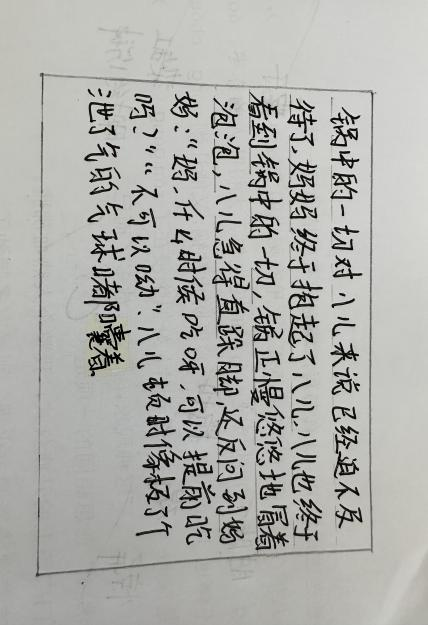 锅中的一切对八儿来说已经迫不及
待了，妈妈终于抱起了八儿，八儿也终于
看到锅中的一切，锅正慢悠悠地冒着
泡泡，八儿急得直跺脚，还反问到妈
妈：“妈，什么时候吃呀，可以提前吃
吗？”“不可以呦”八儿顿时像极了个
泄了气的气球嘟囔着